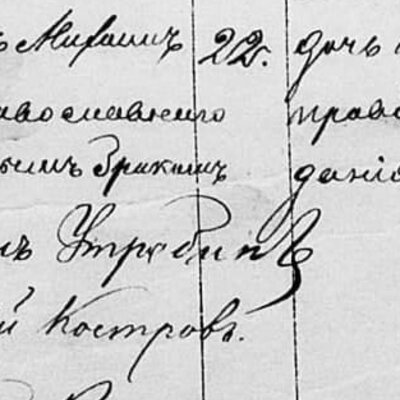 ъ Михаилъ 22г. дочь
авославнаго право
вымъ бракомъ дѣвіс
мъ Утробинъ
й Костровъ.